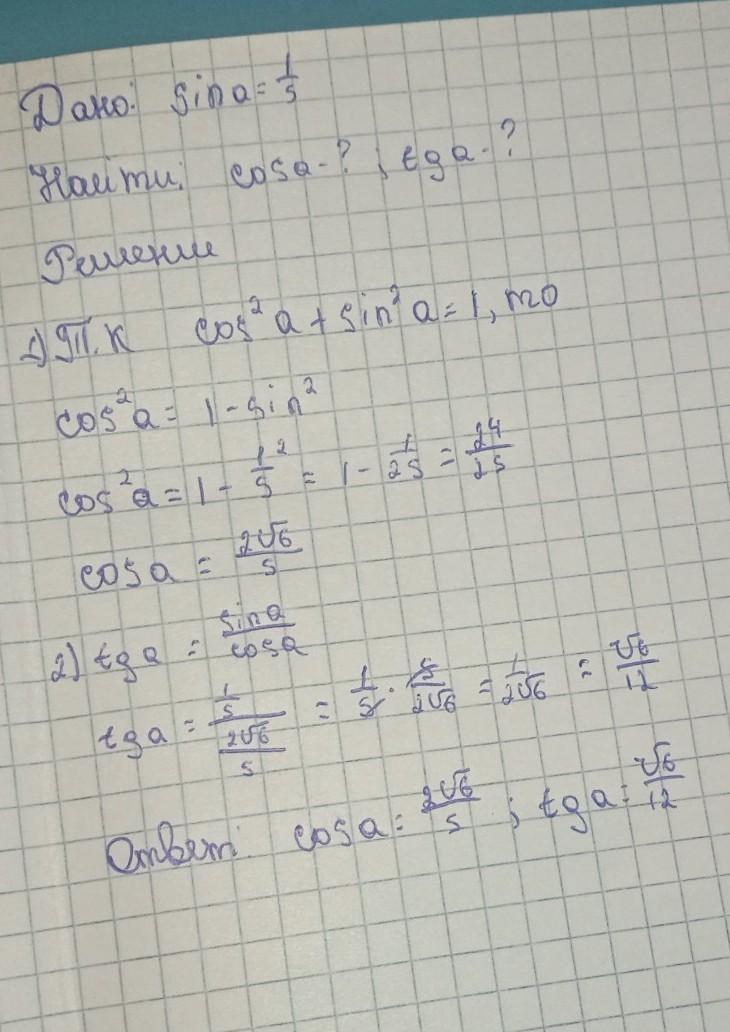 Дано: sin a = 1/5
Найти: cos a - ? ; tg a - ?
Решение
1) Т.к cos² a + sin² a = 1, то
cos² a = 1 - sin²
cos² a = 1 - 1/5² = 1 - 1/25 = 24/25
cos a = 2√6/5
2) tg a = sin a/cos a
tg a = (1/5)/(2√6/5) = 1/5 · 5/2√6 = 1/2√6 = √6/12
Ответ: cos a = 2√6/5 ; tg a = √6/12